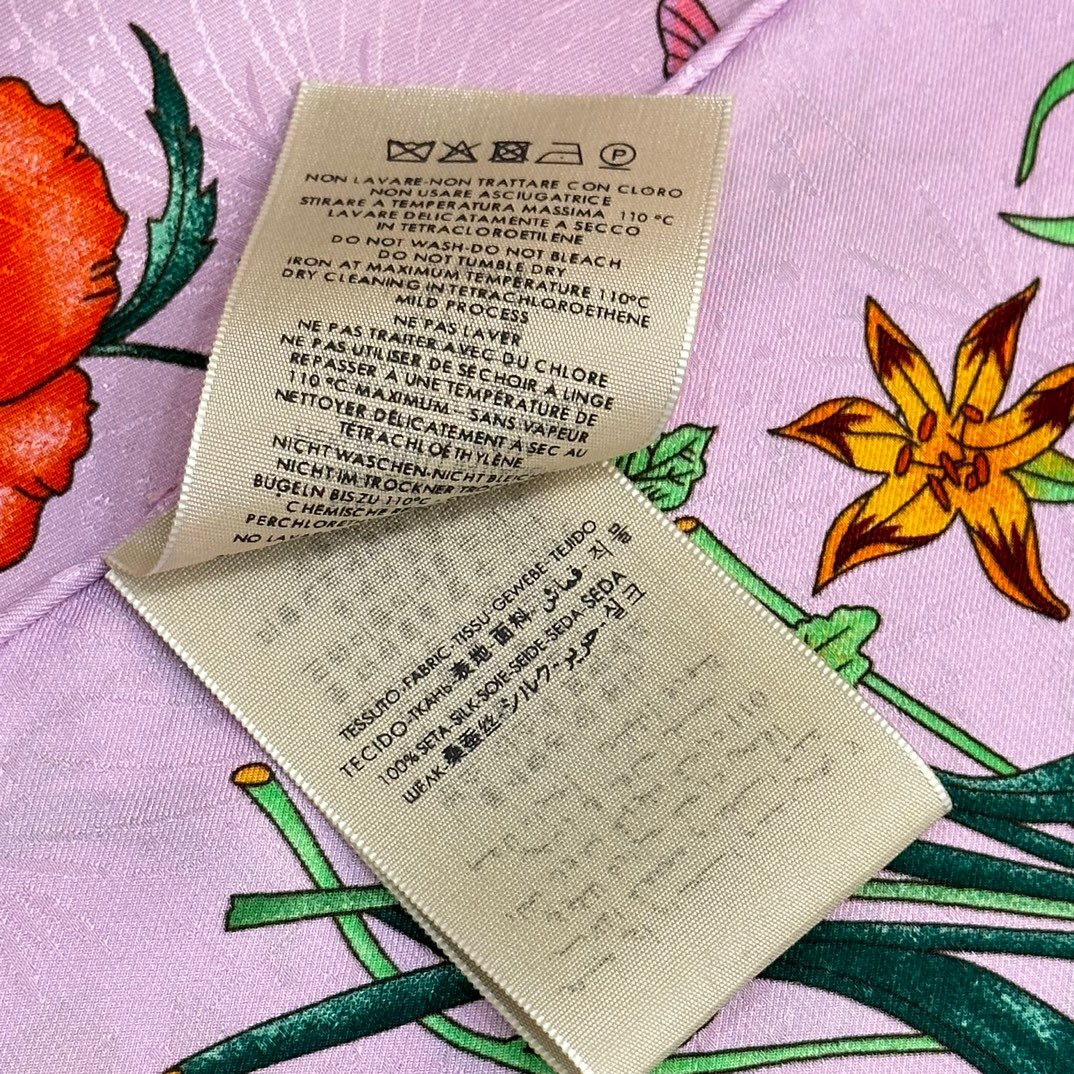 P
NON LAVARE-NON TRATTARE CON CLORO
NON USARE ASCIUGATRICE
STIRARE A TEMPERATURA MASSIMA 110 °C
LAVARE DELICATAMENTE A SECCO
IN TETRACLOROETILENE
DO NOT WASH-DO NOT BLEACH
DO NOT TUMBLE DRY
IRON AT MAXIMUM TEMPERATURE 110°C
DRY CLEANING IN TETRACHLOROETHENE
MILD PROCESS
NE PAS LAVER
NE PAS TRAITER AVEC DU CHLORE
NE PAS UTILISER DE SÉCHOIR À LINGE
REPASSER À UNE TEMPÉRATURE DE
110 °C MAXIMUM-SANS VAPEUR
NETTOYER DÉLICATEMENT À SEC AU
TÉTRACHLOÉTHYLÈNE
NICHT WASCHEN-NICHT
NICHT IM TROCKNER
BÜGELN BIS ZU 110°C
CHEMISCHE
NO
TESSUTO-FABRIC-TISSU-GEWEBE-TEJIDO
TECIDO-ТКАНЬ-表地-面料-قماش-직물
100% SETA-SILK-SOIE-SEIDE-SEDA-SEDA
ШЕЛК-桑蚕丝-シルク-حرير-실크